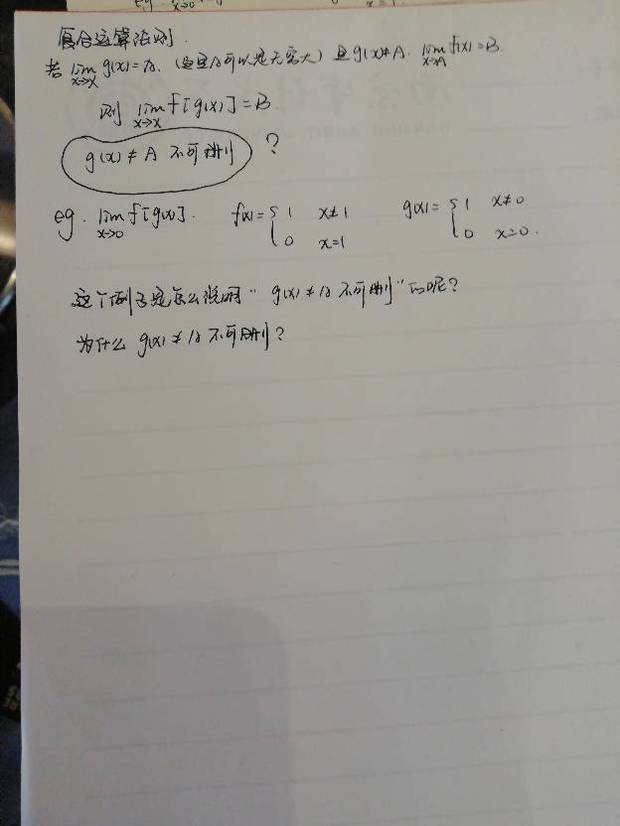 复合运算法则.
若 lim x→X g(x)=A. (这里A可以是无穷大) 且g(x)≠A. lim x→A f(x)=B.
则 lim x→X f[g(x)]=B.
g(x)≠A 不可删 ?
eg. lim x→0 f[g(x)]. f(x)={1 x≠1 g(x)={1 x≠0
0 x=1 0 x=0.
这个例子是怎么说明“g(x)≠A不可删”的呢?
为什么 g(x)≠A不可删?